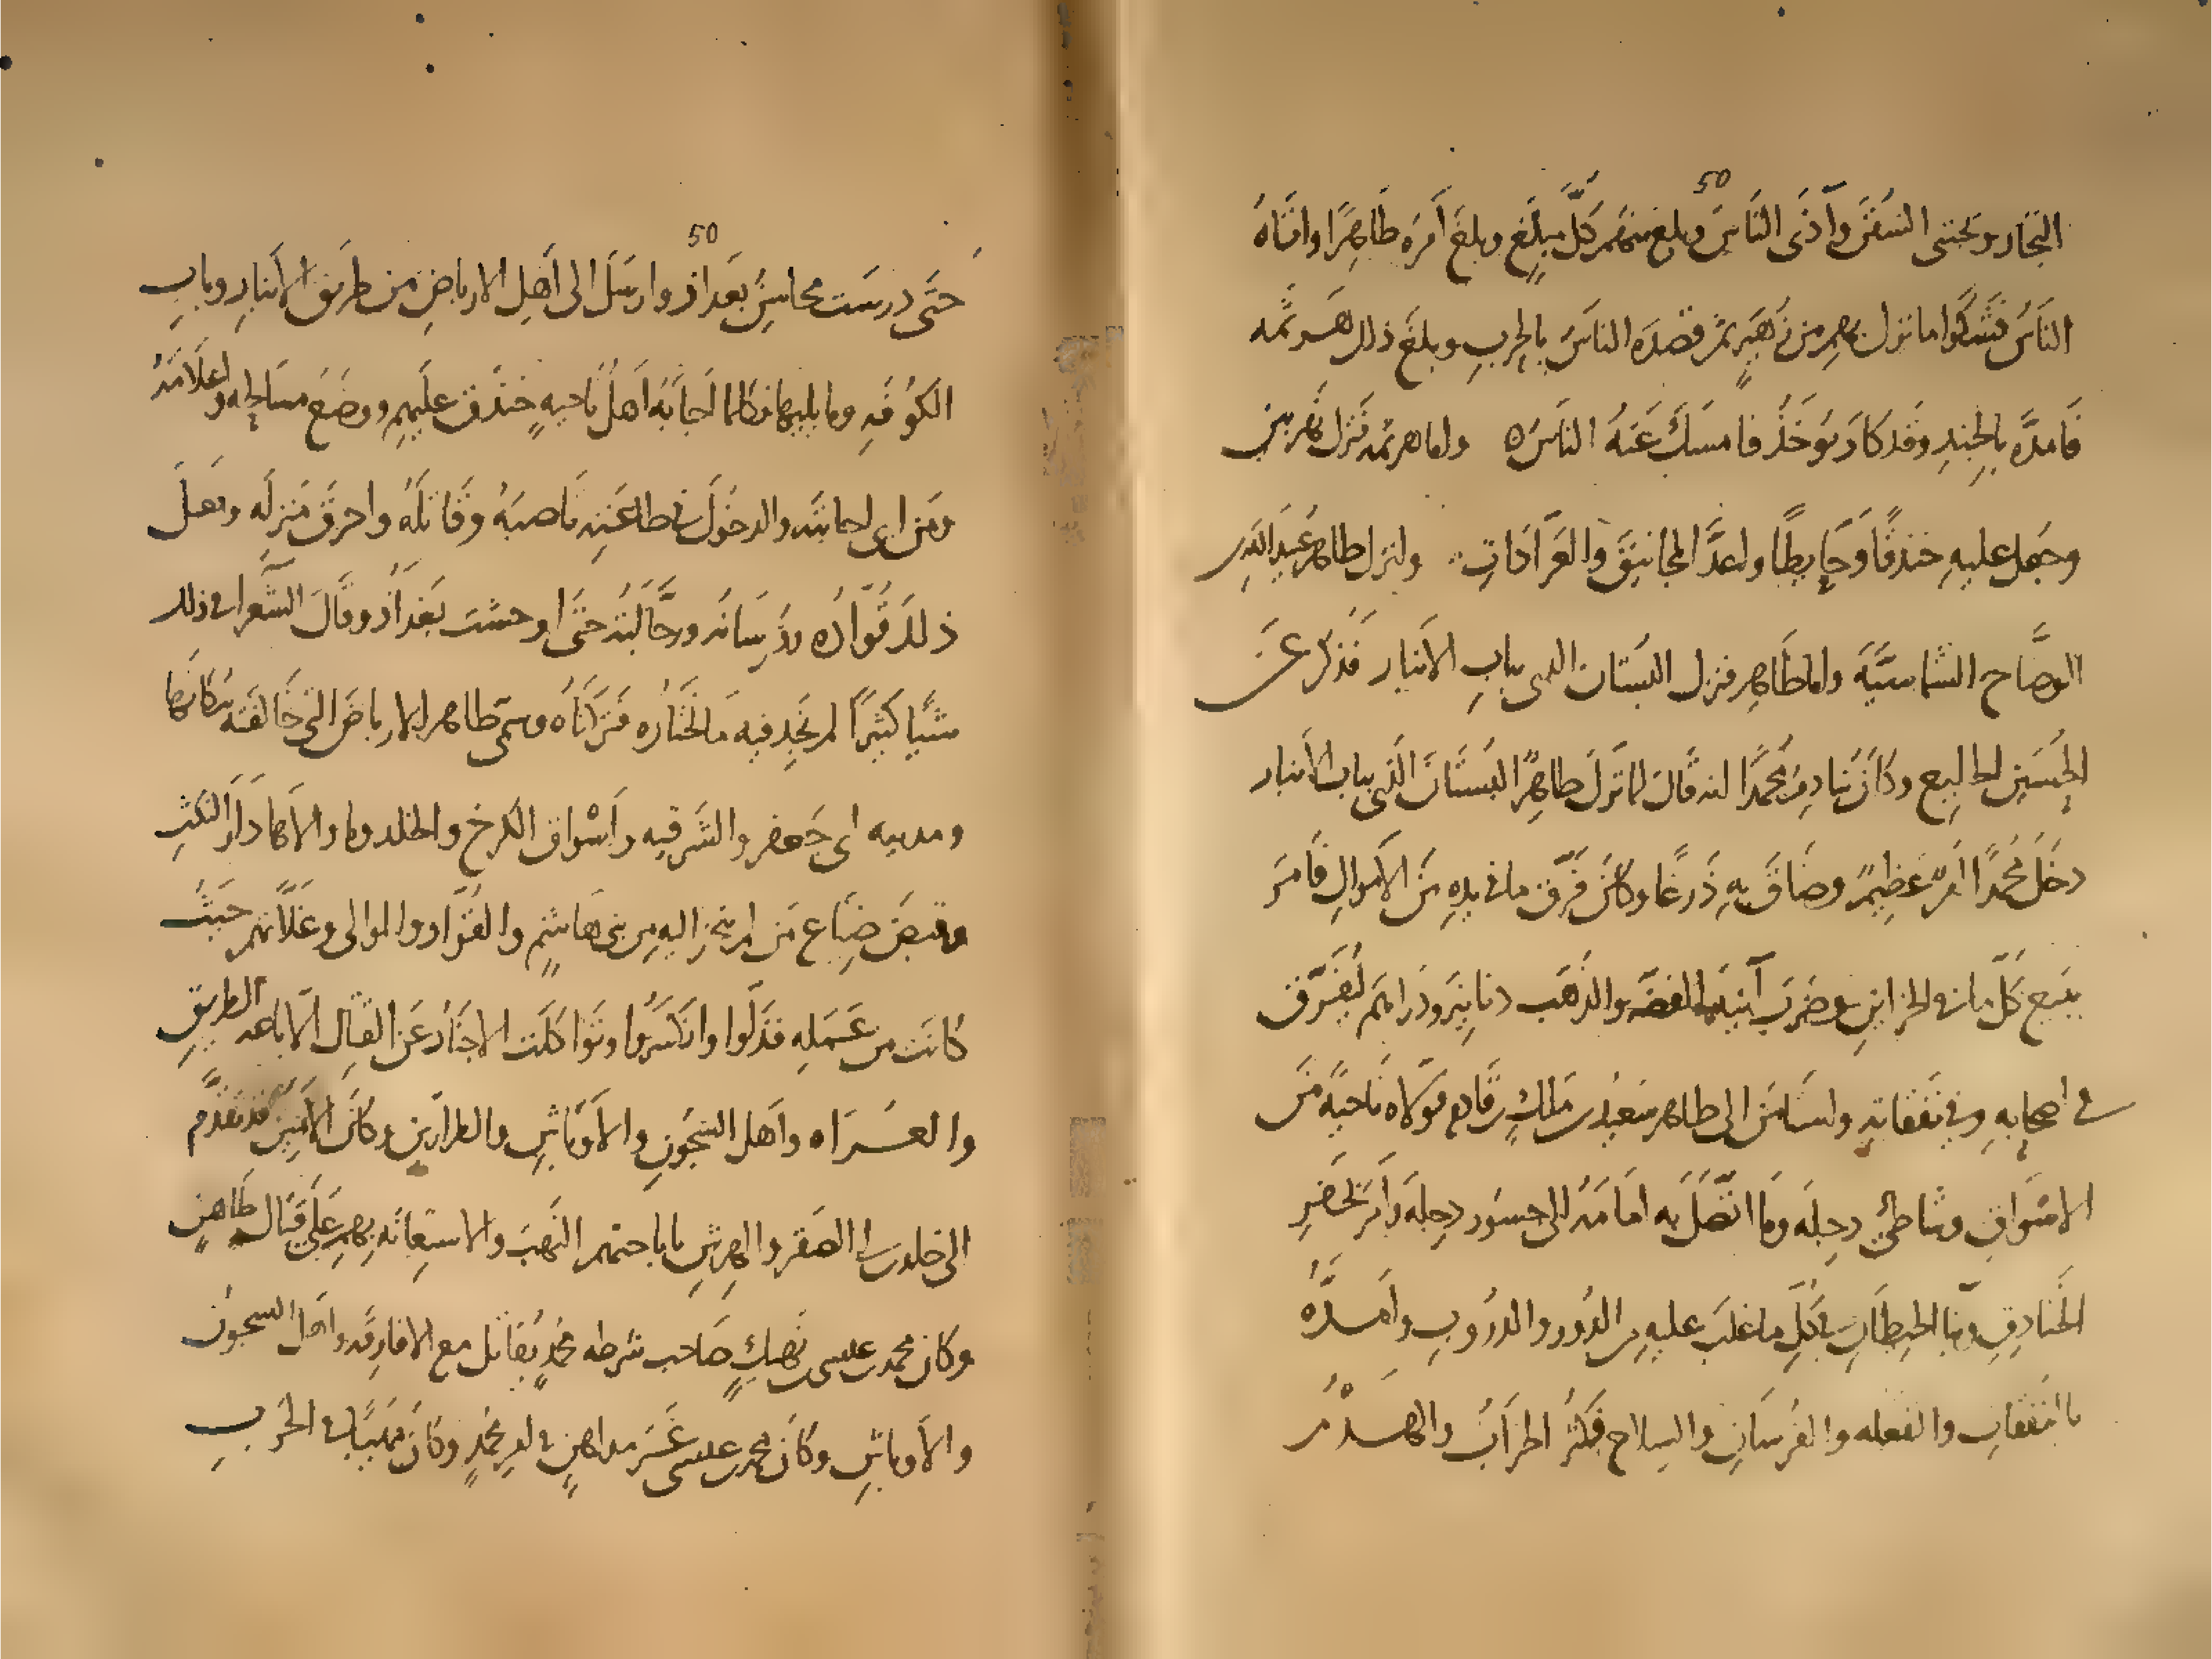 50
التجار ويجتبى السفن وآذى الناس وبلغ منهم كلّ مبلغ وبلغ أمره طاهرًا واتاهُ
الناسُ فشكوا ما نزل بهم من زهير بن قصده الناس بالحرب وبلغ ذلك هرثمه
فامدّه بالجند وقد كاد يوخذ فامسك عنه الناس ٥ واما هرثمه فنزل نهر بين
وجعل عليه خندقًا وحايطًا واعدَّ المجانيق والعرّادات ۞ وانزل طاهر عبيد الله بن
الوضّاح الشماسيّة واما طاهر فنزل البستان الذى بباب الانبار فذكر عن
الحسين الخليع وكان ينادم محمدًا انه قال لما نزل طاهرًا البستان الذى بباب الأنبار
دخل محمدًا امرٌ عظيمٌ وضاق به ذرعًا وكان فرّق ما فى يده من الاموال فامر
ببيع كلّ ما فى الخزاين وضرب آنية الفضه والذهب دنانير ودراهم لتفرّق
فى اصحابه وفى نفقاته واستامن الى طاهر سعيد بن ملك بن قادم فولاه ناحية من
الاسواق وشاطئ دجله وما اتّصل به امامه الى جسور دجله وأمر بحفر
الخنادق وبنا الحيطان فى كل ما غلب عليه من الدُور والدرُوب وأمدّهُ
بالنفقات والفعله والفرسان والسلاح فكثر الخراب والهدم
50
حتّى درست محاسن بغداذ وارسل الى أهل الارباض من طريق الأنبار وباب
الكوفه وما يليها فكلما أجابه اهل ناحيةٍ خندق عليهم ووضع مسالحه واعلامه
ومن ابى اجابته والدخول فى طاعته ناصبه وقاتله واحرق منزله وفعل
ذلك قوّاده وفرسانه ورجّالته حتّى اوحشت بغداذ وقال الشعرا فى ذلك
شيًا كثيرًا لم نجد فيه ما نختاره فتركناه وسمّى طاهر الارباض التى خالفته سكانها
ومدينه ابى جعفر والشرقيه وأسْواق الكرخ والخلد وما والاها دار النكث
وقبض ضياع من لم ينحز اليه من بنى هاشم والقوّاد والموالى وغلاتهم حيث
كانت من عمله فذلّوا وانكسرُوا وتواكلت الاجناد عن القتال الّا باعه الطريق
والعراه وأهل السجُون والأوباش والطرارين وكان الامين قد تقدّم
الى خلد بن ابى الصقر والهرش باباحتهم النهب والاستعانه بهم على قتال طاهر
وكان محمد بن عيسى بن نهيك صاحب شرطه محمدٍ يُقاتل مع الافارقه واهل السجون
والأوباش وكان محمد بن عيسى غير مداهن فى امر محمدٍ وكان مهيبًا فى الحرب